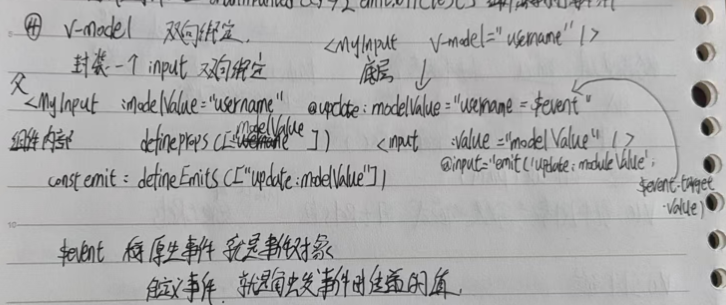 ④ v-model 双向绑定. <MyInput v-model="username" />
封装一个 input 双向绑定 底层
父 <MyInput :modelValue="username" @update:modelValue="username = $event"
组件内部 defineProps(["modelValue"]) <input :value="modelValue" />
const emit = defineEmits(["update:modelValue"]) @input="emit('update:moduleValue',
$event.target
.value)
$event 原生事件 就是事件对象
自定义事件 就是 触发事件时 的值.